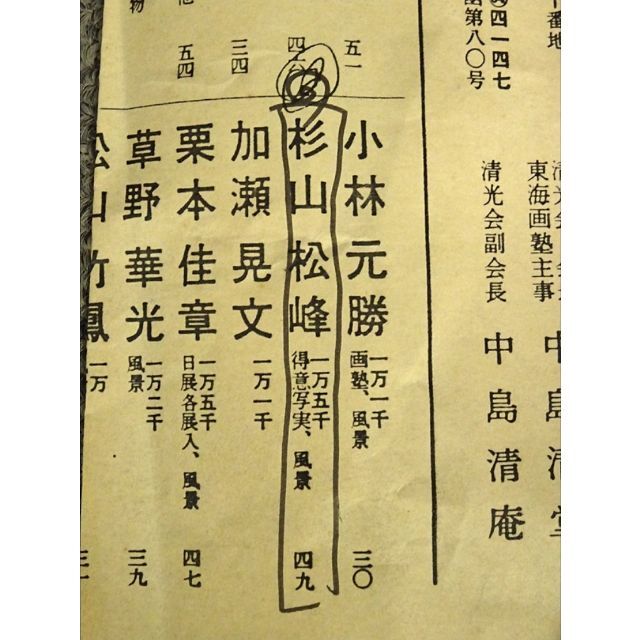 番地
四一四七
第八〇号
清光会
東海画塾主事
中島清堂
清光会副会長
中島清庵
五一
三四
五四
他
物
小林元勝
一万一千
画塾、風景
三〇
杉山松峰
一万五千
得意写実、風景
四九
加瀬晃文
一万一千
栗本佳章
一万五千
日展各展入、風景
四七
草野華光
一万二千
風景
三九
松山竹鳳
一万